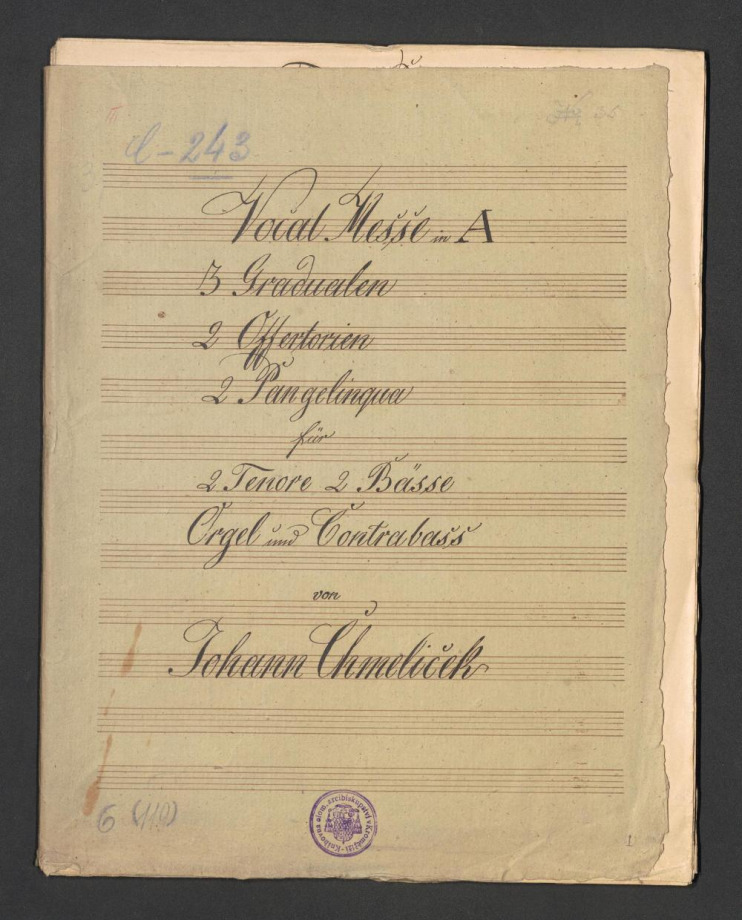 C-243
Vocal Messe in A
3 Gradualen
2 Offertorien
2 Pangelingua
für
2 Tenore 2 Bässe
Orgel und Contrabass
von
Johann Chmeliček
6 (110)
Knihovna olom. arcibiskupství v Kroměříži
1